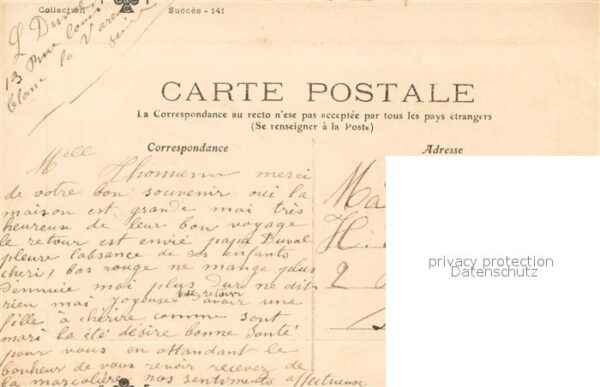 Collection
Succès - 141
L Duval
13 Rue Louis
Blanc la Varenne
Seine
CARTE POSTALE
La Correspondance au recto n'ese pas acceptée par tous les pays étrangers
(Se renseigner à la Poste)
Correspondance
Adresse
Melle Thomann merci
de votre bon souvenir oui la
maison est grande mai très
heureux de leur bon voyage
le retour est envié papa Duval
pleure l'absance de ses enfants
cheri, bas rouge ne mange plus
d'ennuie mai plus dure ne dit
rien mai Joyeuse d'avoir une
fille à chérire comme sont
mari la été désire bonne Santé
pour vous en attandant le
bonheur de vous revoir recevez de
la nos sentiments affectueuse
H.
2
privacy protection
Datenschutz